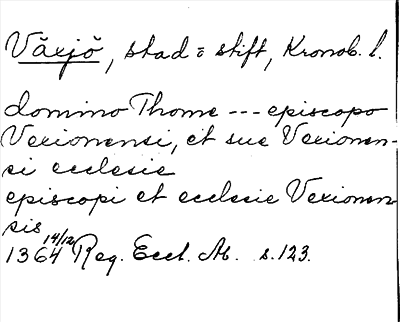 Växjö, stad = stift, Kronob. l.
domino Thome --- episcopo
Vexionensi, et sue Vexionen-
si ecclesie
episcopi et ecclesie Vexionen
sis
1364 14/12 Reg. Eccl. Ab. s. 123.